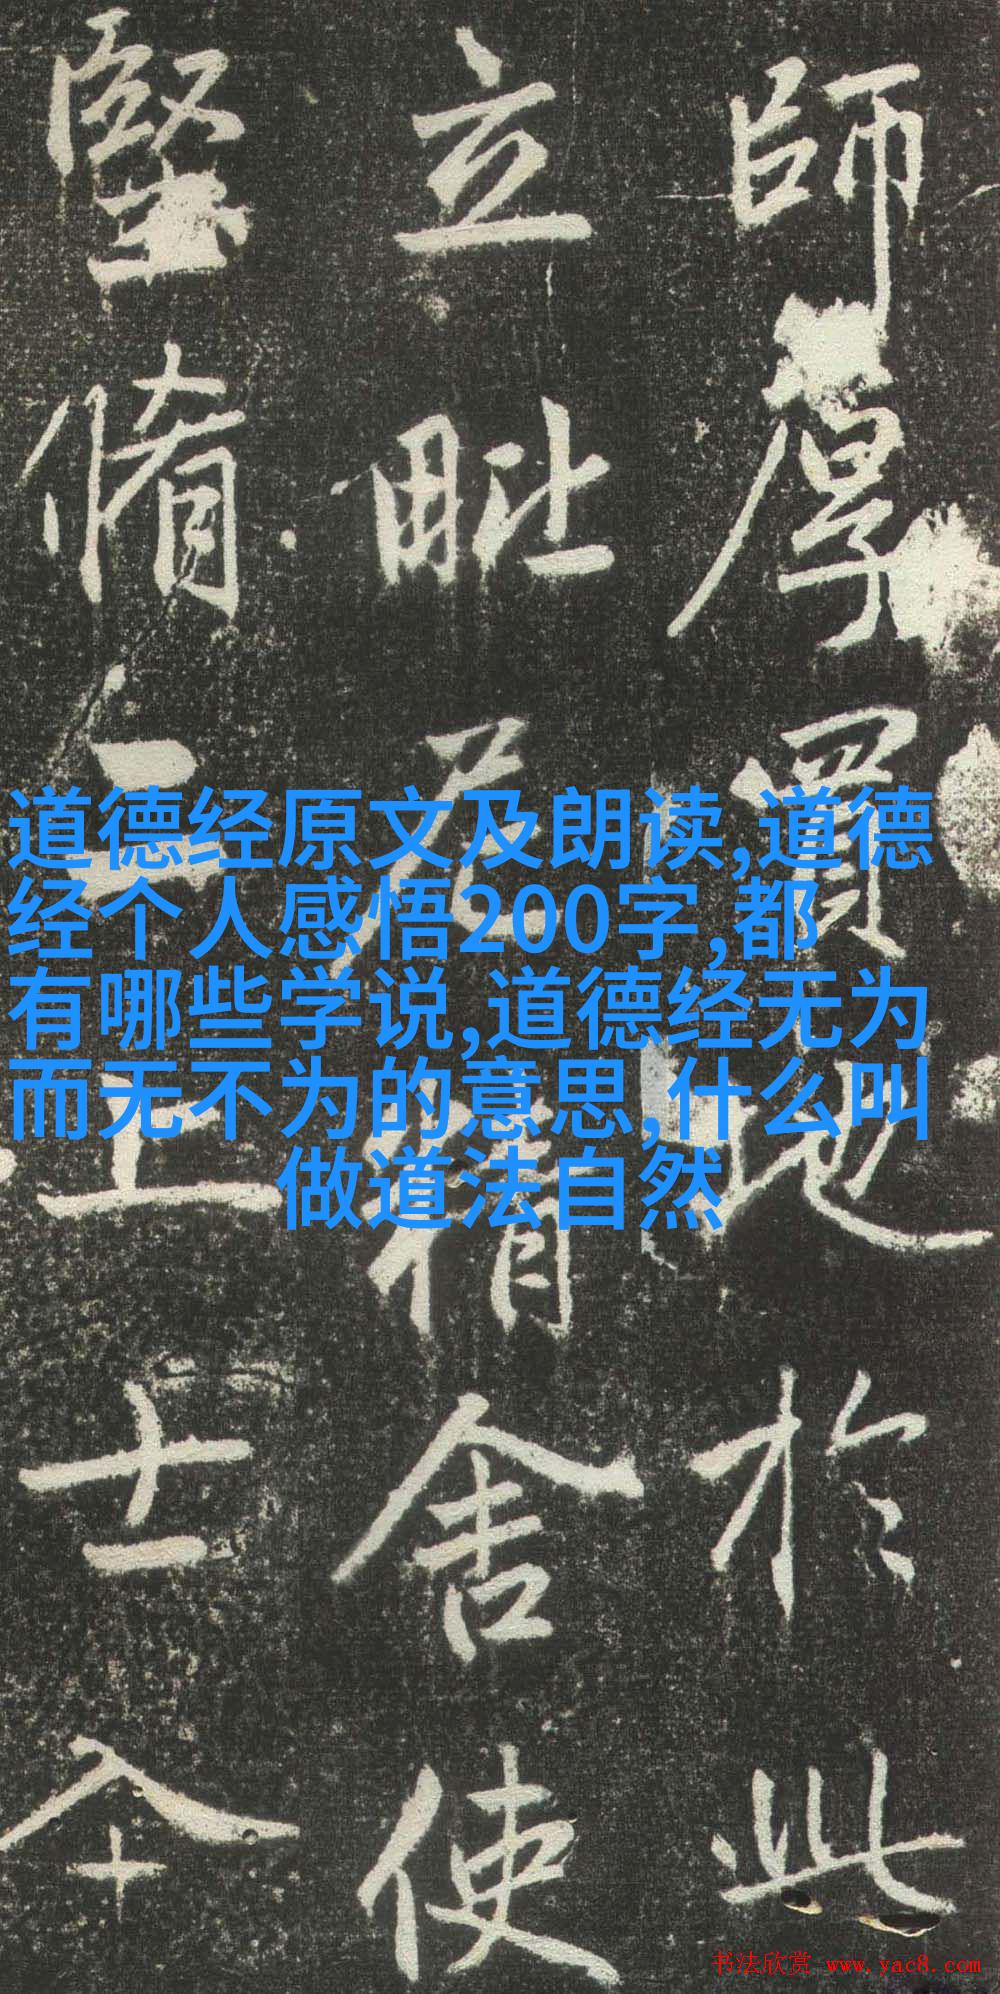 師厚買地於此
立毗尼精舍使
堅脩上士
道德经原文及朗读,道德
经个人感悟200字,都
有哪些学说,道德经无为
而无不为的意思,什么叫
做道法自然
书法欣赏 www.yac8.com